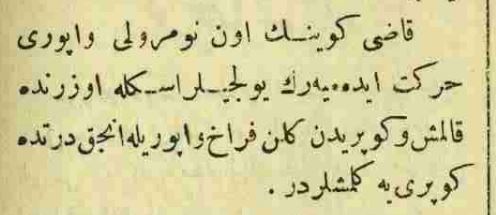 قاضی کوینـك اون نومرولی واپوری
حرکت ایده‌میه‌رك یولجیـلر اسـکله اوزرنده
قالمش و کوپریدن کلن فراخ واپوریله انجق درتده
کوپری یه کلمشلردر .